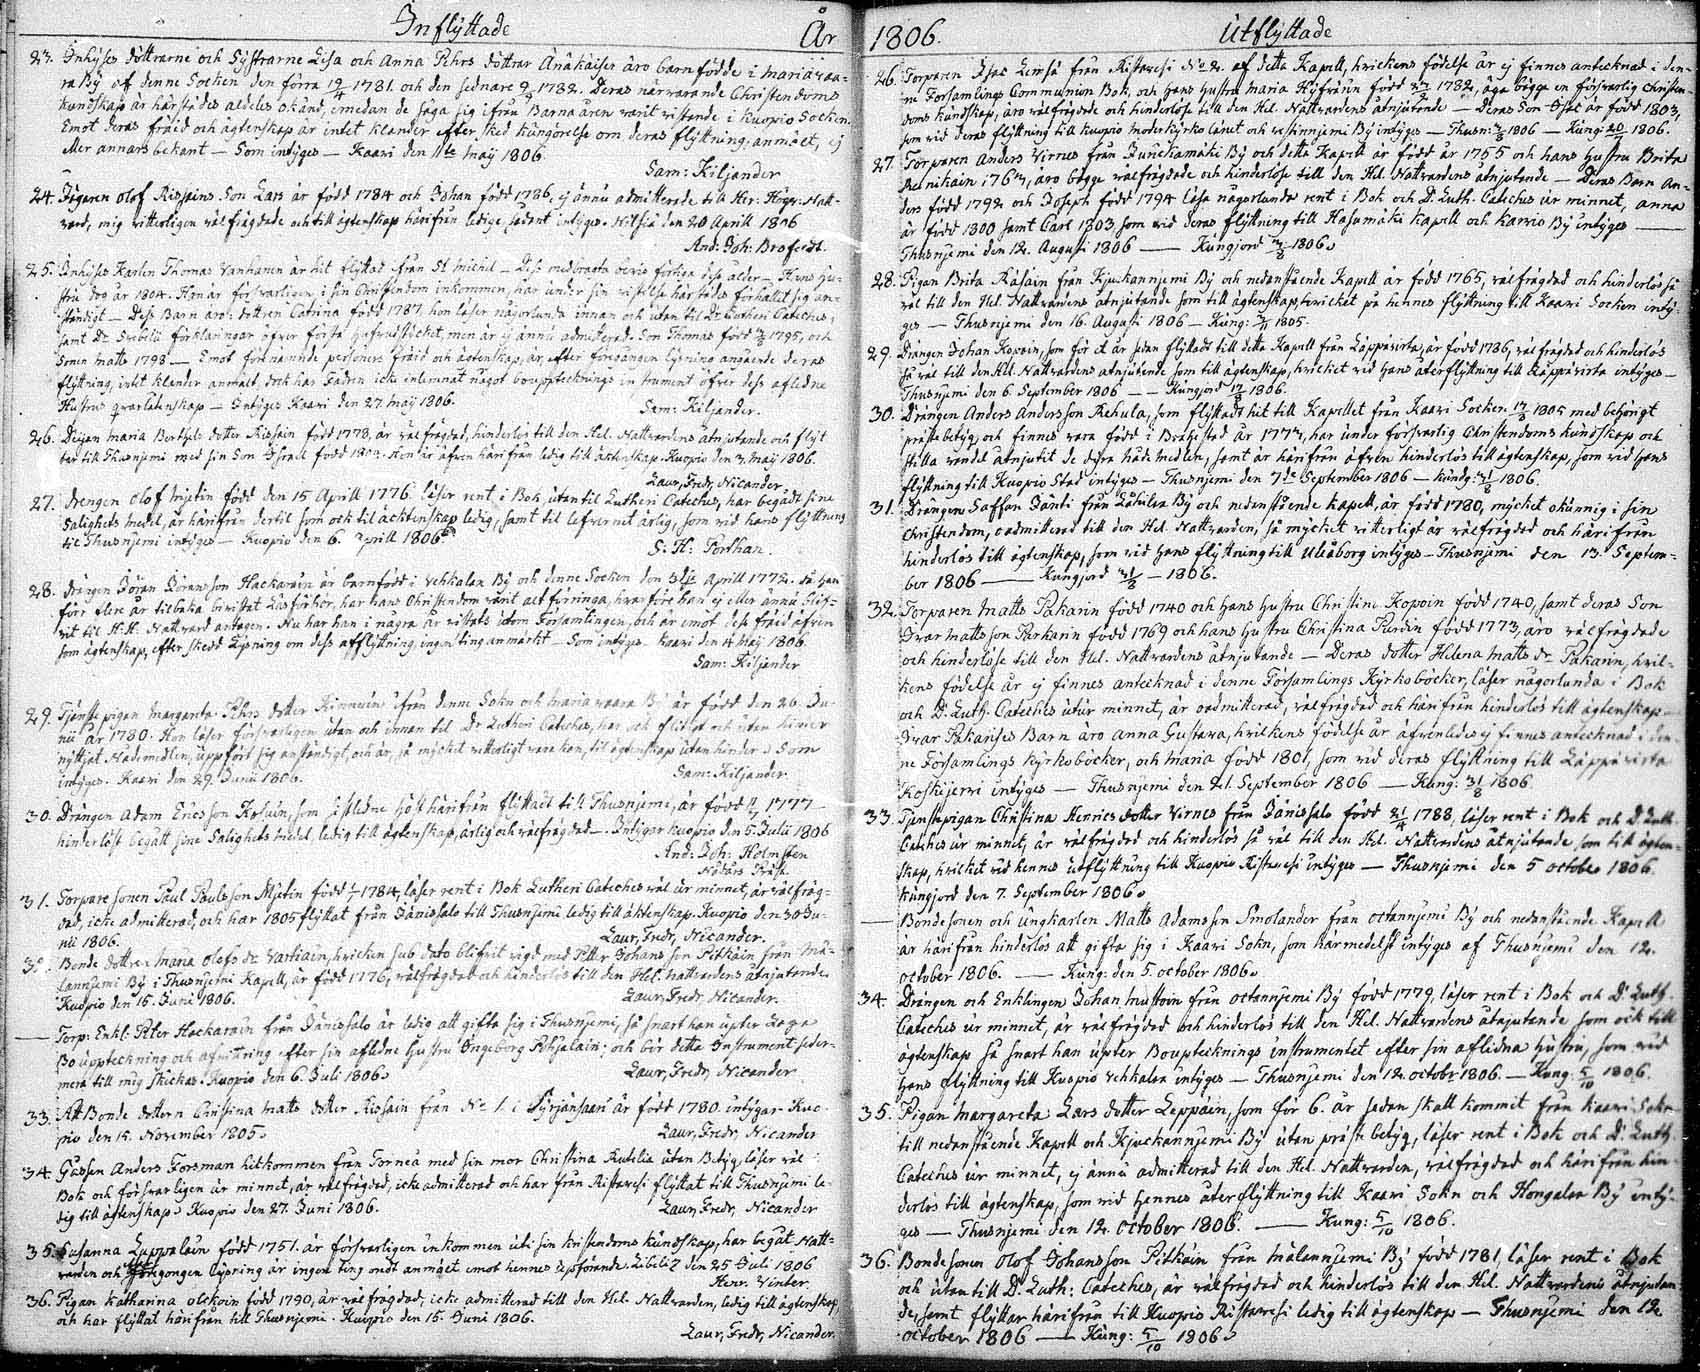 Inflyttade År
23. Inhyses döttrarne och Systrarne Lisa och Anna Pehrs döttrar Änäkäiser äro barnfödde i Mariavaa-
ra By of denne Socken den förra 1781. och den sednare 1782. Deras närvarande Christendoms
kundskap är härstädes aldeles okänd, emedan de säga sig ifrån Barna åren varit vistande i Kuopio Socken.
Emot deras fräid och ägtenskap är intet klander efter sked kungörelse om deras flyttning, anmält, ej
eller annars bekant — Som intyges — Kaavi den 11te Maij 1806.
Sam: Kiljander
24. Jägaren Olof Rissains Son Lars är född 1784 och Johan född 1786, ej ännu admitterade till Her. Högv. Natt-
vard, mig vitterligen välfrägdade och till ägtenskap härifrån ledige, sådant intyges. Nilsiä den 20 Aprill 1806
And: Joh: Brofeldt.
25. Inhyses Karlen Thomas Vanhanen är hit flyttad från St Michel — Dess medbragta bevis förtiga dess ålder — Hans Hu-
stru dog år 1804. Han är försvarligen i sin Christendom inkommen, har under sin vistelse härstädes förhållit sig an-
ständigt — Dess Barn äro: dottren Catrina född 1787, hon läser någorlunda innan och utan til Dr Lutheri Cateches,
samt Dr Svebelii förklaringar öfver första hufvudstycket, men är ej ännu admitterad. Son Thomas född 1795, och
Sonen Matts 1798 — Emot förenämnde personers fräid och ägtenskap, är, efter föregången lysning angående deras
flyttning, intet klander anmält, dock har Fadren icke inlemnat något bouppteckningsinstrument öfver dess afledne
Hustrus qvarlåtenskap — Intyges Kaavi den 27 Maij 1806.
Sam: Kiljander.
26. Deijan Maria Berthels dotter Rissain född 1778, är välfrägdad, hinderlös till den Hel. Nattvardens åtnjutande och flyt
tar till Thusnjemi med sin Son Israel född. Hon är äfven härifrån ledig till äktenskap. Kuopio den 3. Maij 1806.
Laur, Fredr, Nicander
27. Drengen Olof Mjetin född den 15 Aprill 1776. läser rent i Bok, utantil Lutheri Cateches, har begådt sine
Salighets medel, är härifrån dertil som ock til ächtenskap ledig, samt til lefvernet ärlig, som vid hans flyttning
til Thusnjemi intyges — Kuopio den 6. Aprill 1806.
S: H: Porthan.
28. Drängen Jöran Jöransson Hackarain är barnfödd i Vehkalax By och denne Socken den Aprill 1772. Då han
förr flere år tilbaka bivistat Läsförhör, har hans Christendom varit alt för ringa, hvarföre han ej eller ännu blif-
vit til H. H. Nattvard antagen. Nu har han i några år vistats utom Församlingen, och är emot dess fräid äfven
som ägtenskap, efter skedd Lysning om dess afflyttning, ingen ting anmärkt — Som intyges. Kaavi den 4 Maij 1806.
Sam: Kiljander
29. Tjänste pigan Margareta Pehrs dotter Kinnuin ifrån denne Sokn och Mariavaara By är född den 26. Ju-
nii år 1780. Hon läser försvarligen utan och innan til Dr Lutheri Cateches, har ock flitigt och utan
nyttjat Nådemedlen, uppfört sig anständigt, och är, så mycket vitterligt vara kan, til ägtenskap utan hinder. Som
intyges. Kaavi den 29. Junii 1806.
Sam: Kiljander
30. Drängen Adam Ericsson, som sistledne höst härifrån flyttadt till Thusnjemi, är född 1777
hinderlöst begått sine Salighets medel, ledig till ägtenskap, ärlig och välfrägdad — Intygar Kuopio den 5. Julii 1806
And: Joh: Holmsten
31. Torpare Sonen Paul Paulsson Mjetin född 1784, läser rent i Bok Lutheri Cateches väl ur minnet, är välfräg-
dad, icke admitterad, och har 1805 flyttat från Jänissalo till Thusnjemi ledig till äktenskap. Kuopio den 30 Ju-
nii 1806.
Laur, Fredr, Nicander.
32. Bonde dottren Maria Olofs dr Vartiain, hvicken sub dato blifvit vigd med Petter Johansson Pitkäin från Mä-
lannjemi By i Thusnjemi Kapell, är född 1776, välfrägdad och hinderlös till den Hel. Nattvardens åtnjutande
Kuopio den 15. Junii 1806.
Laur, Fredr, Nicander.
— Torp: Enkl: Peter Hackarain från Jänissalo är ledig att gifta sig i Thusnjemi, så snart han upter Laga
Bo uppteckning och afvittring efter sin afledne Hustru Ingeborg Pohjalain; och bör detta Instrument seder-
mera till mig skickas. Kuopio den 6. Julii 1806.
Laur, Fredr, Nicander
33. Att Bonde dottern Christina Matts dotter Rissain från No 1. i Syrjänsaari är född 1780. intygar Kuo-
pio den 15. November 1805.
Laur, Fredr, Nicander
34. Gåssen Anders Forsman hitkommen från Torneå med sin mor Christina Rutilia utan Betyg, läser väl i
Bok och försvarligen ur minnet, är välfrägdad, icke admitterad och har från Ristavesi flyttat till Thusnjemi le-
dig till ägtenskap. Kuopio den 27. Junii 1806.
Laur, Fredr, Nicander
35. Susanna Luppolain född 1751. är försvarligen inkommen uti sin kristendoms kundskap, har begåt Natt-
varden och gongen lysning är ingen ting ondt anmält emot hennes upförande. Libelitz den 25 Julii 1806
Henr. Winter.
36. Pigan Katharina Olckoin född 1790, är välfrägdad, icke admitterad till den Hel. Nattvarden, ledig till ägtenskap,
och har flyttat härifrån till Thusnjemi. Kuopio den 15. Junii 1806.
Laur, Fredr, Nicander.
1806. Utflyttade
26. Torparen Isac Lemså från Ristavesi No 2. af detta Kapell, hvickens födelse år ej finnes antecknad i den-
ne Församlings Communion Bok, och hans hustru Maria Hyfväin född 1782, äga bägge en försvarlig christen-
doms kundskap, äro välfrägdade och hinderlöse till den Hel. Nattvardens åtnjutande — Deras Son Isac är född 1803,
som vid deras flyttning till Kuopio moderkyrko länet och vestinnjemi By intyges — Thusn: 1806 — Kung: 1806.
27. Torparen Anders Virnes från Juurikkamäki By och detta Kapell är född år 1755 och hans hustru Brita
Reinikain 1763, äro bägge välfrägdade och hinderlöse till den Hel. Nattvardens åtnjutande — Deras Barn An-
ders född 1792 och Joseph född 1794 läsa någorlunda rent i Bok och D. Luth. Cateches ur minnet, Anna
är född 1800 samt Carl 1803 som vid deras flyttning till Hasumäki Kapell och Karvio By intyges —
Thusnjemi den 12. Augusti 1806 — Kungjord 1806.
28. Pigan Brita Räsäin från Kjukannjemi By och nedanstående Kapell är född 1765, välfrägdad och hinderlös så
väl till den Hel. Nattvardens åtnjutande som till ägtenskap, hvicket på hennes flyttning till Kaavi Socken inty-
ges — Thusnjemi den 16. Augusti 1806 — Kung: 1805.
29. Drängen Johan Kopoin, som för et år sedan flyttadt till detta Kapell från Läppävirta, är född 1786, välfrägdad och hinderlös
så väl till den Hel. Nattvardens åtnjutande som till ägtenskap, hvicket vid hans återflyttning till Läppävirta intyges —
Thusnjemi den 6. September 1806 — Kungjord 1806.
30. Drängen Anders Andersson Rehula, som flyttadt hit till Kapellet från Kaavi Socken 1805 med behörigt
prästebetyg, och finnes vara född i Brahestad år 1777, har under försvarlig Christendoms kundskap och
stilla vandel åtnjutit de dyra nådemedlen, samt är härifrån äfven hinderlös till ägtenskap, som vid hans
flyttning till Kuopio Stad intyges — Thusnjemi den 7de September 1806 — Kung: 31/8 1806.
31. Drängen Saffan Jänti från Lätulux By och nedanstående Kapell, är född 1780, mycket okunnig i sin
Christendom, oadmitterad till den Hel. Nattvarden, så mycket vitterligt är välfrägdad och härifrån
hinderlös till ägtenskap, som vid hans flyttning till Uleåborg intyges — Thusnjemi den 13. Septem-
ber 1806 — Kungjord 31/8 — 1806.
32. Torparen Matts Pakarin född 1740 och hans hustru Christina Kopoin född 1740, samt deras Son
Ivar Mattsson Pakarin född 1769 och hans hustru Christina Purdin född 1773, äro välfrägdade
och hinderlöse till den Hel. Nattvardens åtnjutande — Deras dotter Helena Matts dr Pakarin, hvil-
kens födelse år ej finnes antecknad i denne Församlings Kyrkoböcker, läser någorlunda i Bok
och D. Luth. Cateches utur minnet, är oadmitterad, välfrägdad och härifrån hinderlös till ägtenskap —
Ivar Pakarises Barn äro Anna Gustava, hvilkens födelse år äfvenledes ej finnes antecknad i den-
ne Församlings Kyrkoböcker, och Maria född 1801, som vid deras flyttning till Läppävirta
Koskijervi intyges — Thusnjemi den 21. September 1806 — Kung: 31/8 1806
33. Tjenstepigan Christina Henrics dotter Virnes från Jänissalo född 21/4 1788, läser rent i Bok och D. Luth.
Cateches ur minnet, är välfrägdad och hinderlös så väl till den Hel. Nattvardens åtnjutande som till ägten-
skap, hvicket vid hennes utflyttning till Kuopio Ristavesi intyges — Thusnjemi den 5 october 1806.
Kungjord den 7. September 1806.
— Bonde Sonen och ungkarlen Matts Adamsson Smolander från Octannjemi By och nedanstående Kapell
är härifrån hinderlös att gifta sig i Kaavi Sokn, som härmedelst intyges af Thusnjemi den 12.
october 1806. — Kung: den 5. october 1806.
34. Drängen och Enklingen Johan Mustoin från Octannjemi By född 1779, läser rent i Bok och D. Luth.
Cateches ur minnet, är välfrägdad och hinderlös till den Hel. Nattvardens åtnjutande som ock till
ägtenskap så snart han upter Boupptecknings instrumentet efter sin aflidna hustru, som vid
hans flyttning till Kuopio Vehkalax intyges — Thusnjemi den 12. october 1806. — Kung: 5/10 1806.
35. Pigan Margareta Lars dotter Leppäin, som för 6. år sedan skall kommit från Kaavi Sokn
till nedanstående Kapell och Kjuckannjemi By utan präste betyg, läser rent i Bok och D. Luth.
Cateches ur minnet, ej ännu admitterad till den Hel. Nattvarden, välfrägdad och härifrån hin-
derlös till ägtenskap, som vid hennes återflyttning till Kaavi Sokn och Kongalax By inty-
ges — Thusnjemi den 12. october 1806. — Kung: 5/10 1806.
36. Bondesonen Olof Johansson Pitkäin från Mälannjemi By född 1781, läser rent i Bok
och utan till D. Luth: Cateches, är välfrägdad och hinderlös till den Hel. Nattvardens åtnjutan-
de, samt flyttar härifrån till Kuopio Ristavesi ledig till ägtenskap — Thusnjemi den 12.
october 1806 — Kung: 5/10 1806.